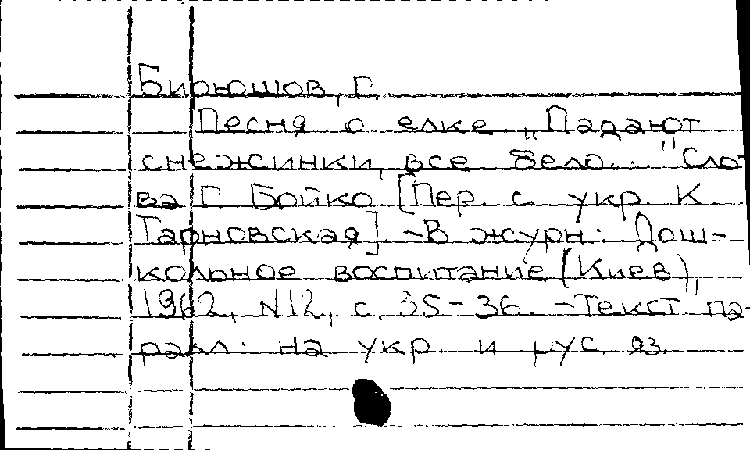 Бирюшов, Г.
Песня о елке „Падают
снежинки, все бело..." Сло-
ва Г. Бойко [Пер. с укр. К.
Тарновская] -В журн: Дош-
кольное воспитание (Киев),
1962, N12, с. 35-36. -Текст па-
ралл. на укр. и рус. яз.